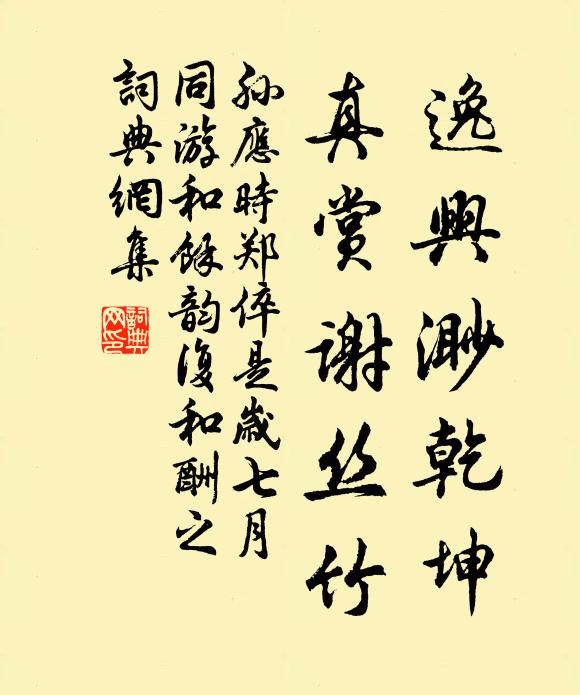 逸興渺乾坤
真赏谢丝竹
孙應時郑倅是歲七月
同游和餘韵復和酬之
詞典網集
詞典
网印